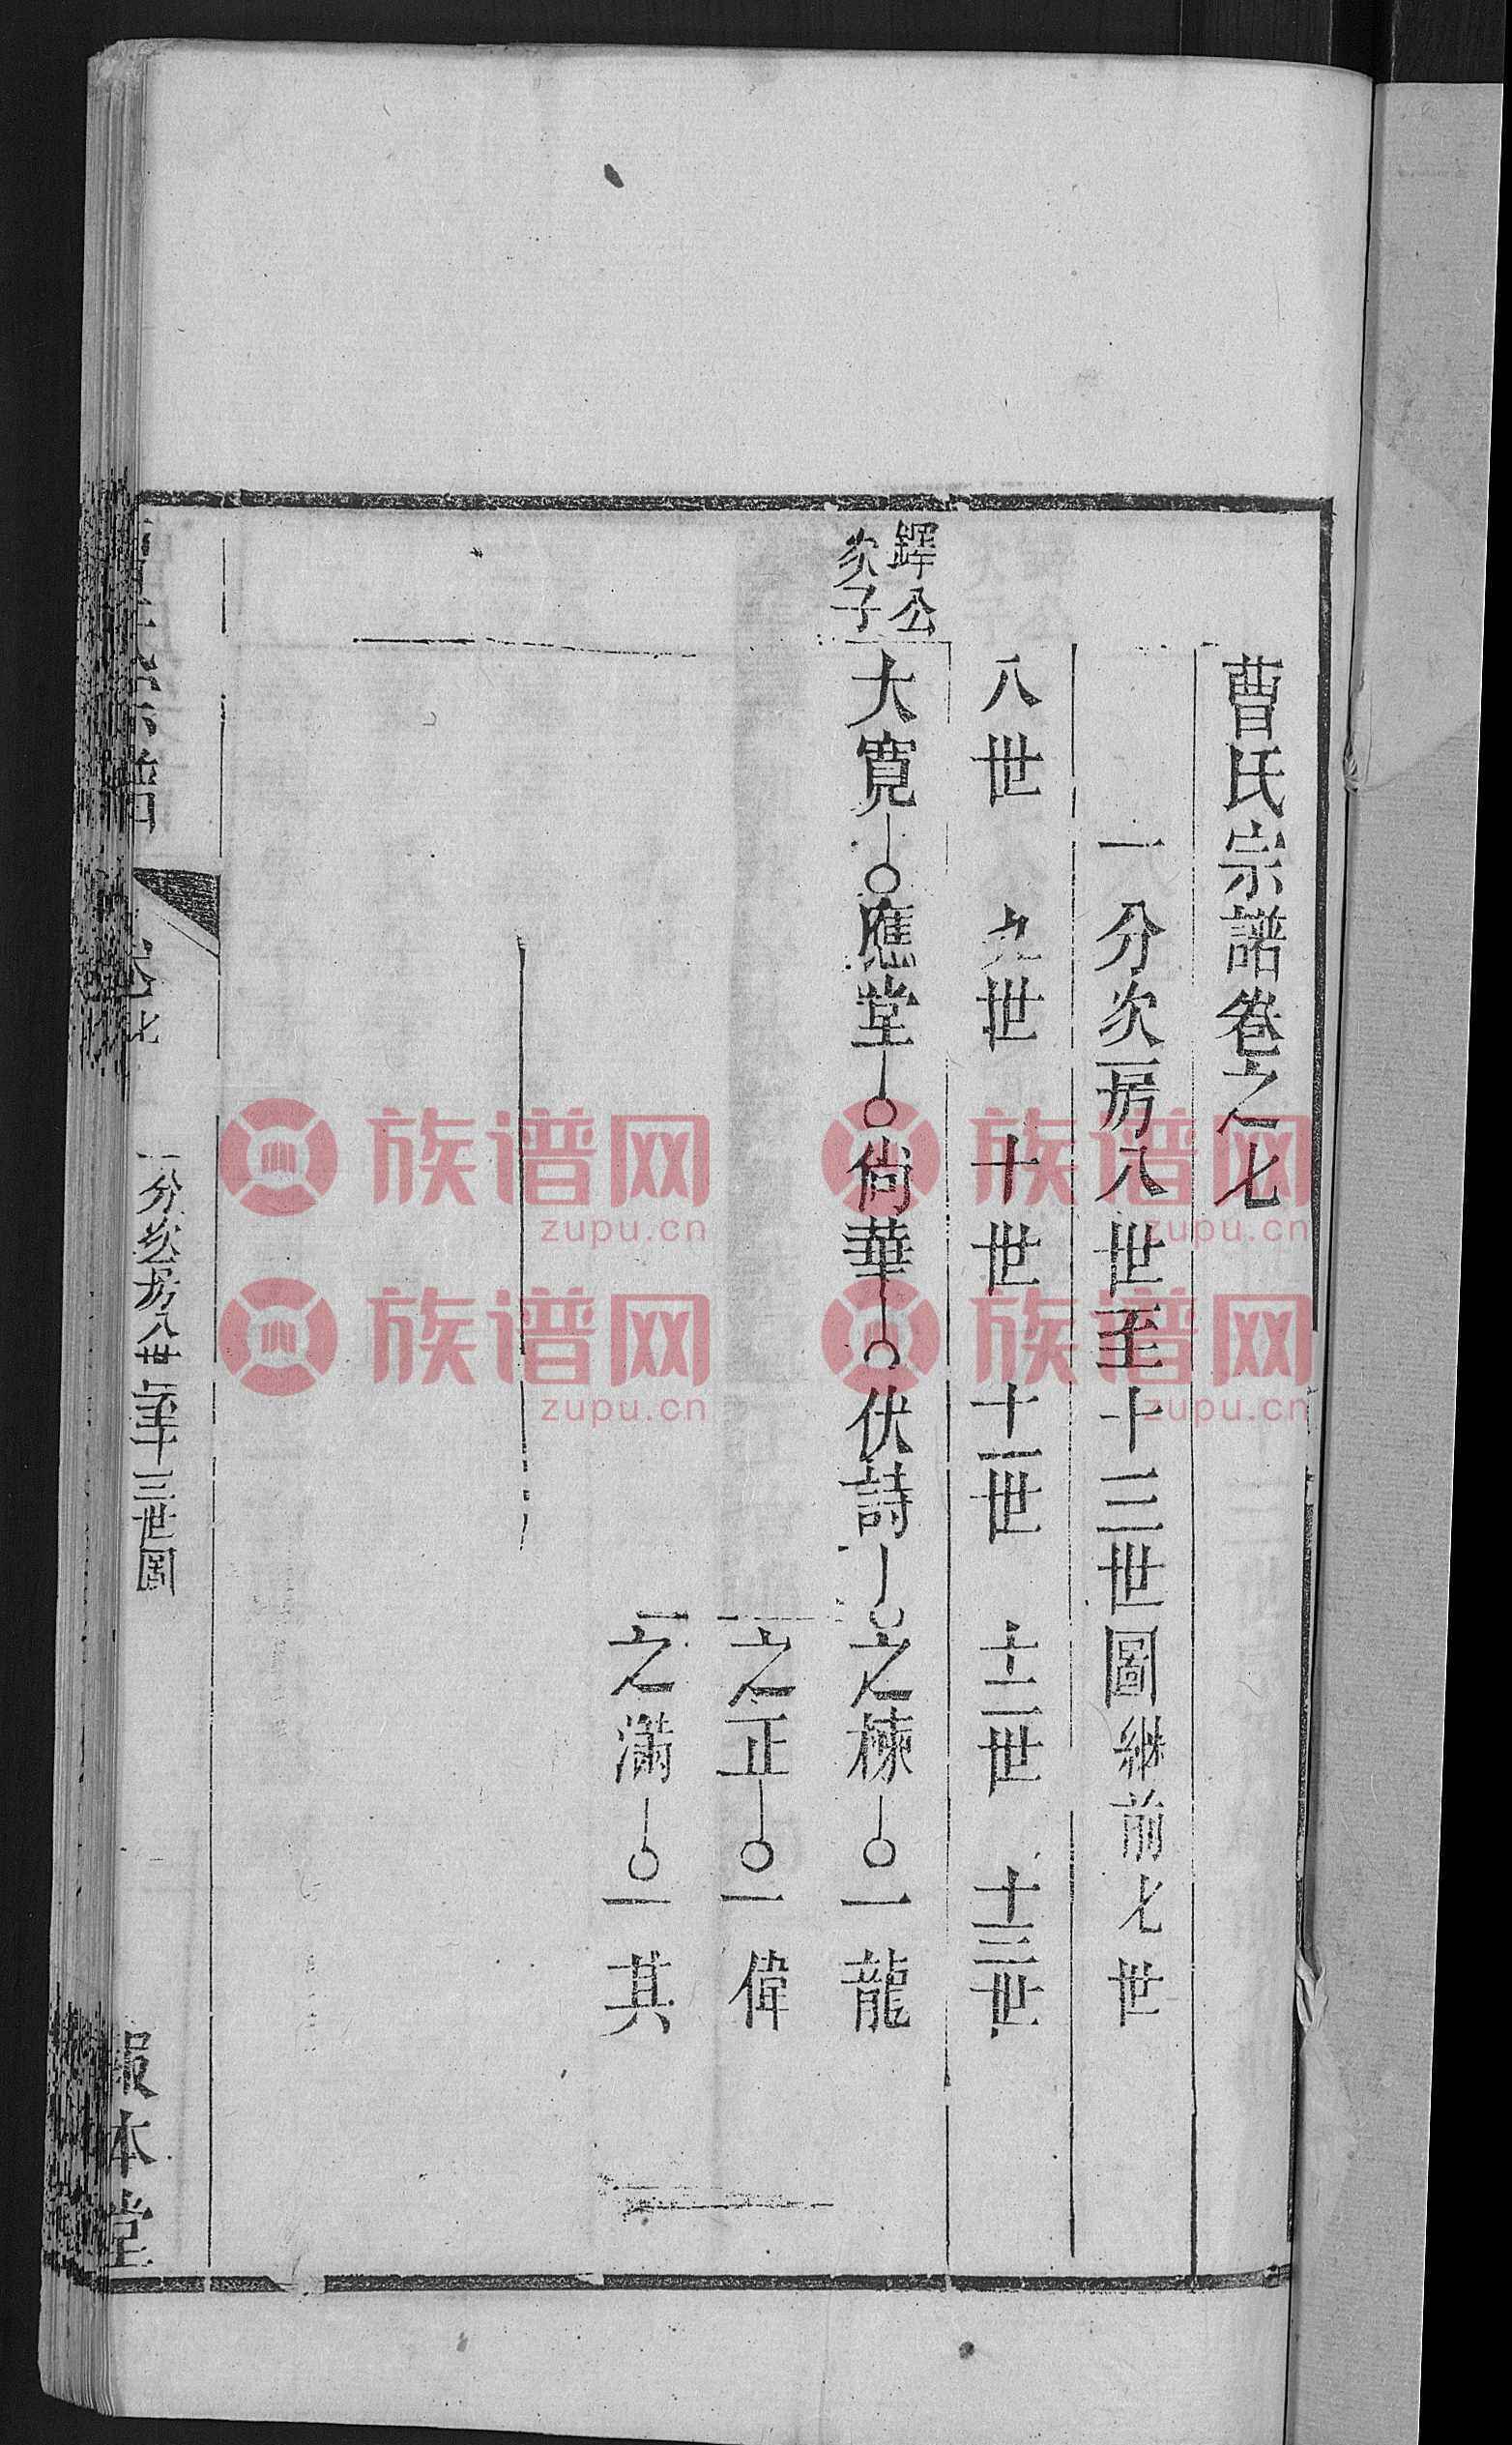 曹氏宗譜卷之七
一分次房八世至十三世圖 繼前七世
八世 九世 十世 十一世 十二世 十三世
鐸公
次子
大寬 應堂 尙華 伏詩 之棟 一龍
之正 一偉
之滿 一其
宗譜
卷七
一分次房八世至十三世圖
報本堂
族谱网
zupu.cn
族谱网
zupu.cn
族谱网
zupu.cn
族谱网
zupu.cn